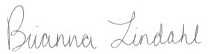 Brianna Lindahl